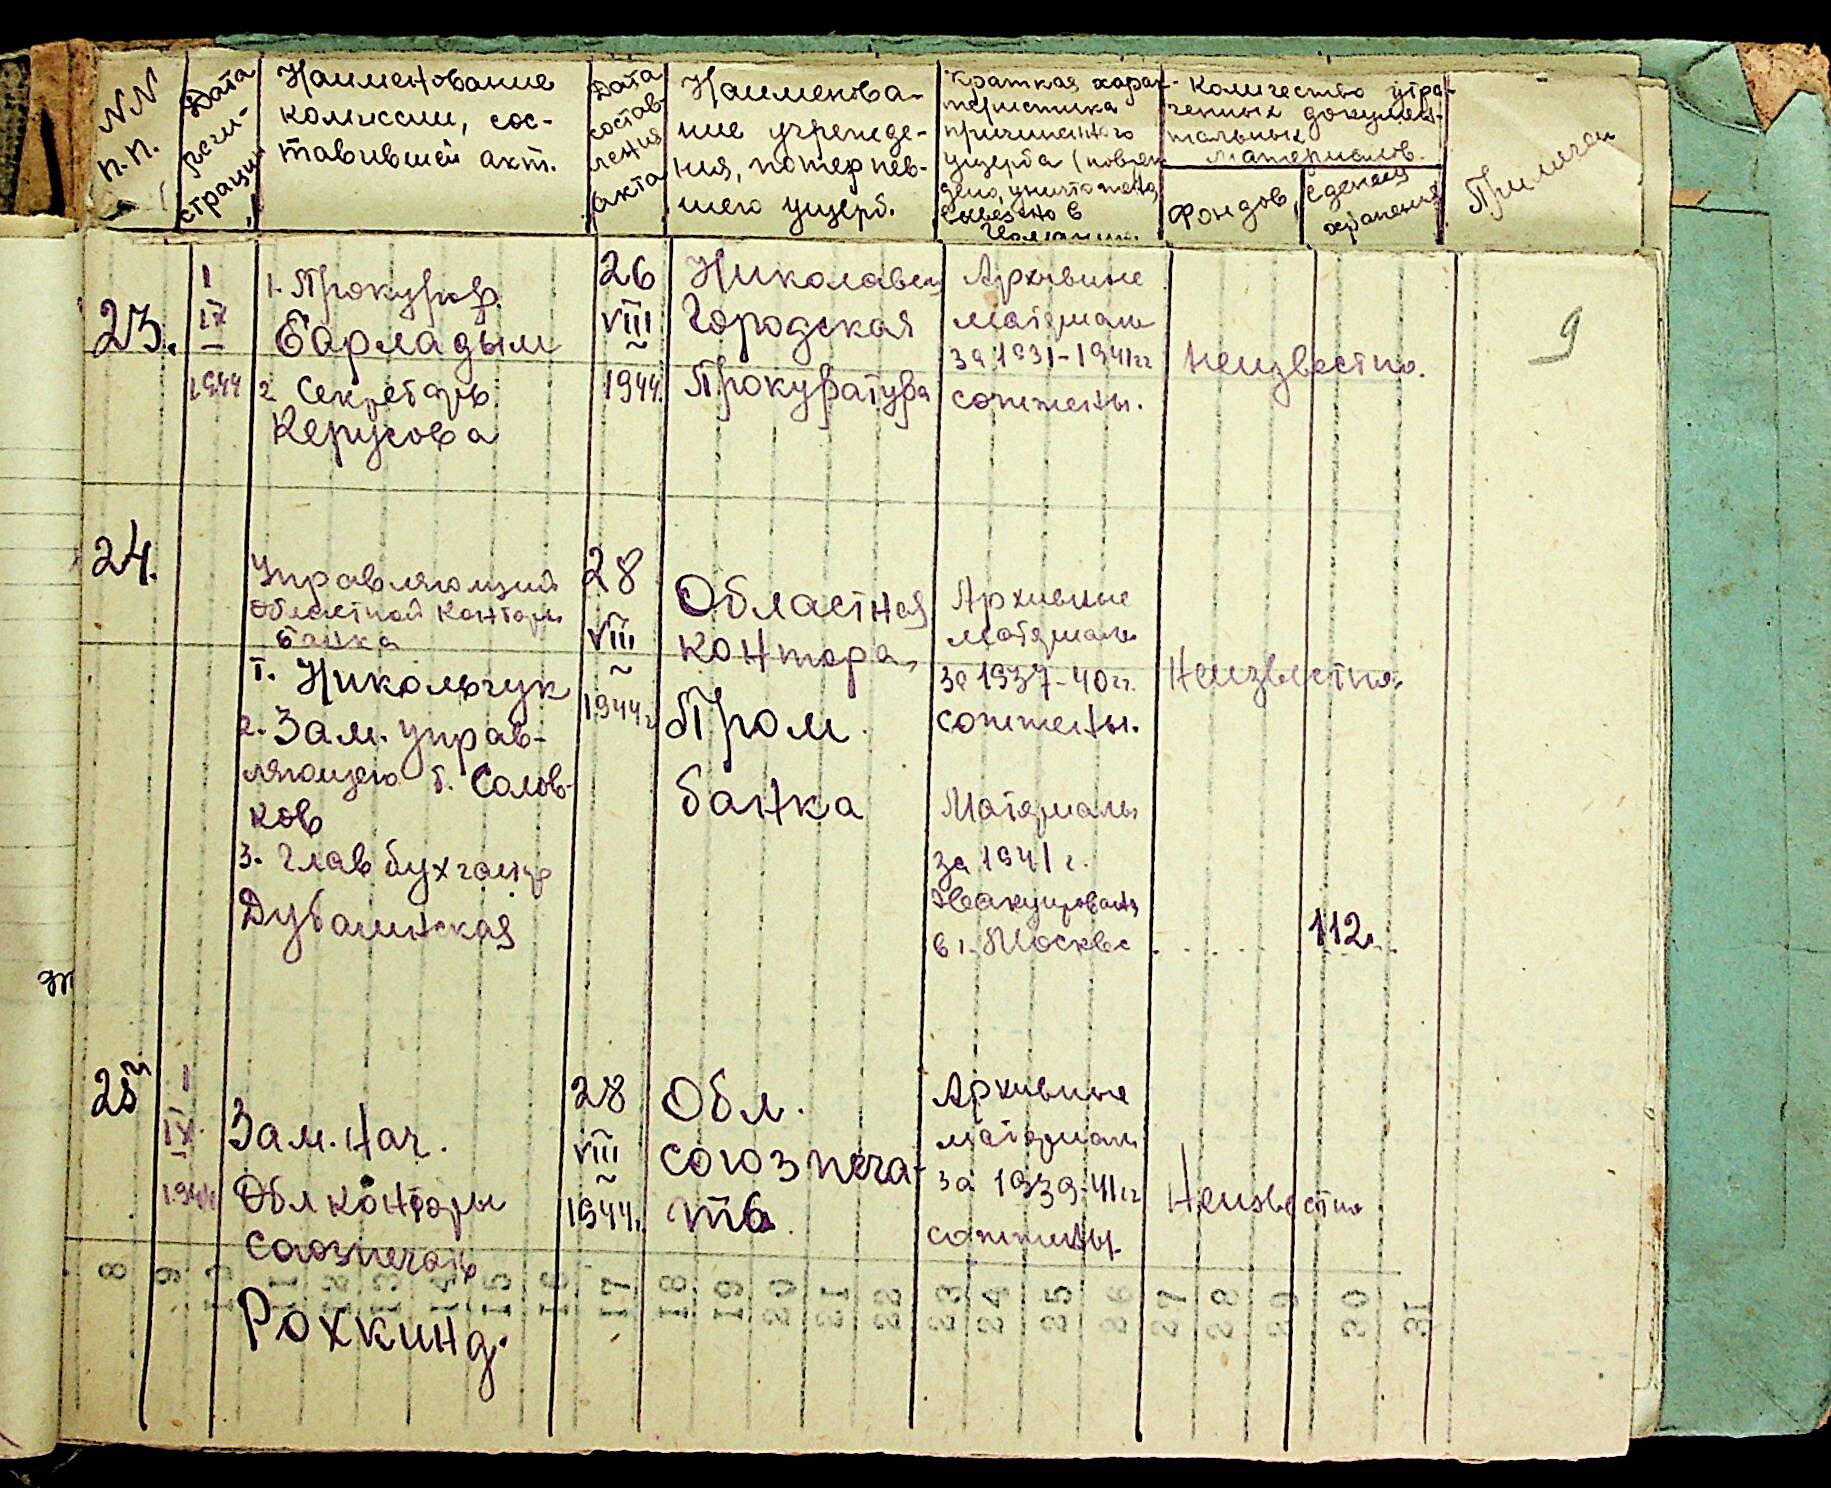 NN
п.п.
Дата
реги-
страции
Наименование
комиссии, сос-
тавившей акт.
Дата
состав-
ления
акта
Наименова-
ние учрежде-
ния, потерпев-
шего ущерб.
Краткая харак-
теристика
причиненного
ущерба (повреж
дено, уничтожено,
вывезено в
Количество утра-
ченных докумен-
тальных
материалов.
Фондов,
Единиц
хранения
Примечан
9
23.
I
IX
1944
1. Прокурор
Барладым
2 Секретарь
Керусова
26
VIII
1944.
Николаевск
Городская
Прокуратура
Архивные
материалы
за 1931-1941гг
сожжены.
Неизвестно.
24.
Управляющий
Областной Конторы
банка
т. Никольчук
2. Зам. управ-
ляющего т. Солов-
ков
3. Глав бухгалтер
28
VIII
1944г
Областная
контора,
Пром.
банка
Архивные
материалы
за 1937-40гг.
сожжены.
Материалы
за 1941 г.
Эвакуированы
в г. Москве
Неизвестно.
112.
25
I
IX
1944
Зам. нач.
Обл конторы
Союзпечать
Рохкинд.
28
VIII
1944.
Обл.
союзпеча-
ть
Архивные
материалы
за 1939-41гг
сожжены.
Неизвестно
8 9 10 11 12 13 14 15 16 17 18 19 20 21 22 23 24 25 26 27 28 29 30 31